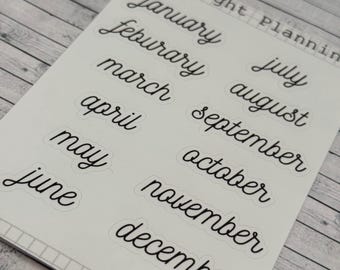 ght Plannin
january
feburary
march
april
may
june
july
august
september
october
november
decembe